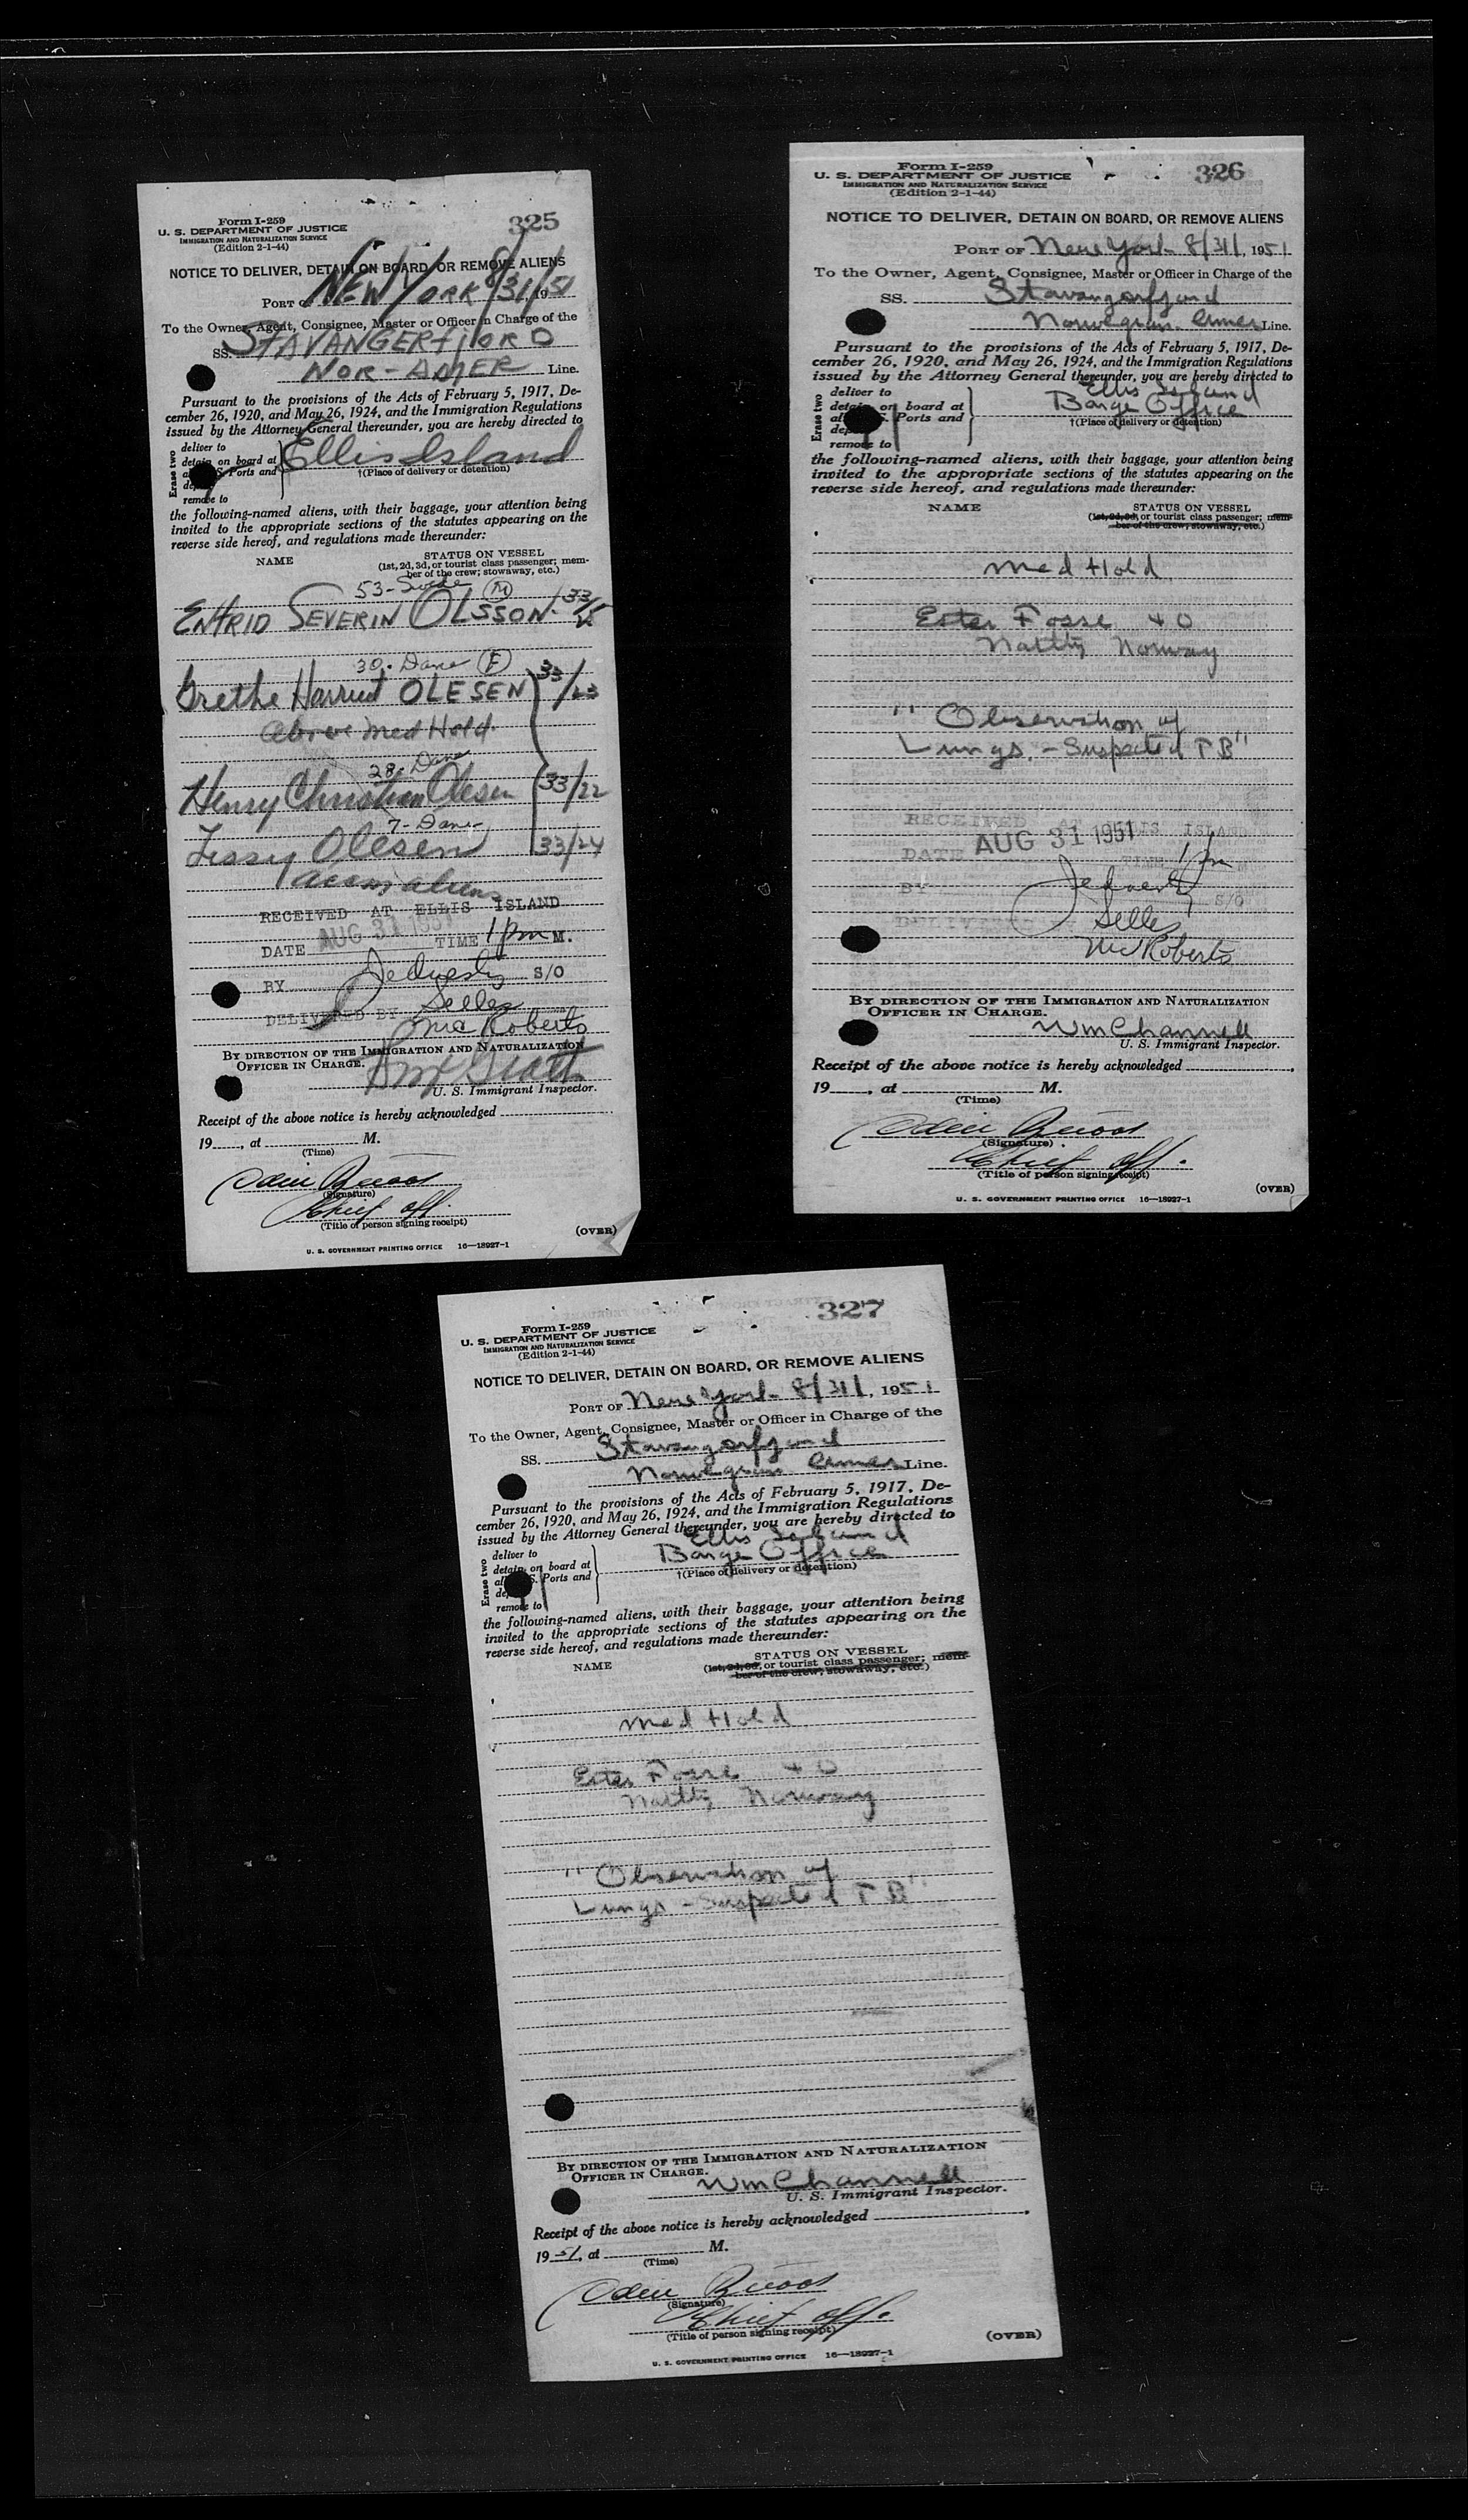 Form I-259
U. S. DEPARTMENT OF JUSTICE
IMMIGRATION AND NATURALIZATION SERVICE
(Edition 2-1-44)
325
NOTICE TO DELIVER, DETAIN ON BOARD, OR REMOVE ALIENS
PORT OF NEW YORK 8/31/1951
To the Owner, Agent, Consignee, Master or Officer in Charge of the
SS. STAVANGERfjORD
NOR-AMER Line.
Pursuant to the provisions of the Acts of February 5, 1917, De-
cember 26, 1920, and May 26, 1924, and the Immigration Regulations
issued by the Attorney General thereunder, you are hereby directed to
Erase two
deliver to
detain on board at
Ports and
remove to
Ellis Island
†(Place of delivery or detention)
the following-named aliens, with their baggage, your attention being
invited to the appropriate sections of the statutes appearing on the
reverse side hereof, and regulations made thereunder:
NAME
STATUS ON VESSEL
(1st, 2d, 3d, or tourist class passenger; mem-
ber of the crew; stowaway, etc.)
53-Swede (M)
SEVERIN OLSSON
30-Dane (F)
Grethe Harriet OLESEN 33/23
Above Med Hold.
28-Dane
Henry Christian Olesen 33/22
7-Dane
Olesen 33/24
RECEIVED AT ELLIS ISLAND
DATE AUG 31 1951 TIME 1 pm M.
BY S/O
DELIVERED BY Selles
McRoberts
BY DIRECTION OF THE IMMIGRATION AND NATURALIZATION
OFFICER IN CHARGE.
U. S. Immigrant Inspector.
Receipt of the above notice is hereby acknowledged
19 , at M.
(Time)
(Signature)
Chief off.
(Title of person signing receipt)
(OVER)
U. S. GOVERNMENT PRINTING OFFICE 16—18927-1
Form I-259
U. S. DEPARTMENT OF JUSTICE
IMMIGRATION AND NATURALIZATION SERVICE
(Edition 2-1-44)
326
NOTICE TO DELIVER, DETAIN ON BOARD, OR REMOVE ALIENS
PORT OF New York 8/31/, 1951
To the Owner, Agent, Consignee, Master or Officer in Charge of the
SS. Stavangerfjord
Norwegian Amer Line.
Pursuant to the provisions of the Acts of February 5, 1917, De-
cember 26, 1920, and May 26, 1924, and the Immigration Regulations
issued by the Attorney General thereunder, you are hereby directed to
Erase two
deliver to
detain on board at
Ports and
remove to
Ellis Island
Barge Office
†(Place of delivery or detention)
the following-named aliens, with their baggage, your attention being
invited to the appropriate sections of the statutes appearing on the
reverse side hereof, and regulations made thereunder:
NAME
STATUS ON VESSEL
(1st, 2d, 3d, or tourist class passenger; mem-
ber of the crew; stowaway, etc.)
Med Hold
Ester Fosse 40
Norway
"Observation of
Lungs - Suspected TB"
RECEIVED AT ELLIS ISLAND
DATE AUG 31 1951 TIME 1 pm
BY S/O
DELIVERED Selles
McRoberts
BY DIRECTION OF THE IMMIGRATION AND NATURALIZATION
OFFICER IN CHARGE.
Wm Channell
U. S. Immigrant Inspector.
Receipt of the above notice is hereby acknowledged
19 , at M.
(Time)
(Signature)
Chief off.
(Title of person signing receipt)
(OVER)
U. S. GOVERNMENT PRINTING OFFICE 16—18927-1
Form I-259
U. S. DEPARTMENT OF JUSTICE
IMMIGRATION AND NATURALIZATION SERVICE
(Edition 2-1-44)
327
NOTICE TO DELIVER, DETAIN ON BOARD, OR REMOVE ALIENS
PORT OF New York 8/31/, 1951
To the Owner, Agent, Consignee, Master or Officer in Charge of the
SS. Stavangerfjord
Norwegian Amer Line.
Pursuant to the provisions of the Acts of February 5, 1917, De-
cember 26, 1920, and May 26, 1924, and the Immigration Regulations
issued by the Attorney General thereunder, you are hereby directed to
Erase two
deliver to
detain on board at
Ports and
remove to
Ellis Island
Barge Office
†(Place of delivery or detention)
the following-named aliens, with their baggage, your attention being
invited to the appropriate sections of the statutes appearing on the
reverse side hereof, and regulations made thereunder:
NAME
STATUS ON VESSEL
(1st, 2d, 3d, or tourist class passenger; mem-
ber of the crew; stowaway, etc.)
Med Hold
Ester Fosse 40
Norway
"Observation of
Lungs - Suspected TB"
BY DIRECTION OF THE IMMIGRATION AND NATURALIZATION
OFFICER IN CHARGE.
Wm Channell
U. S. Immigrant Inspector.
Receipt of the above notice is hereby acknowledged
1951, at M.
(Time)
(Signature)
Chief off.
(Title of person signing receipt)
(OVER)
U. S. GOVERNMENT PRINTING OFFICE 16—18927-1